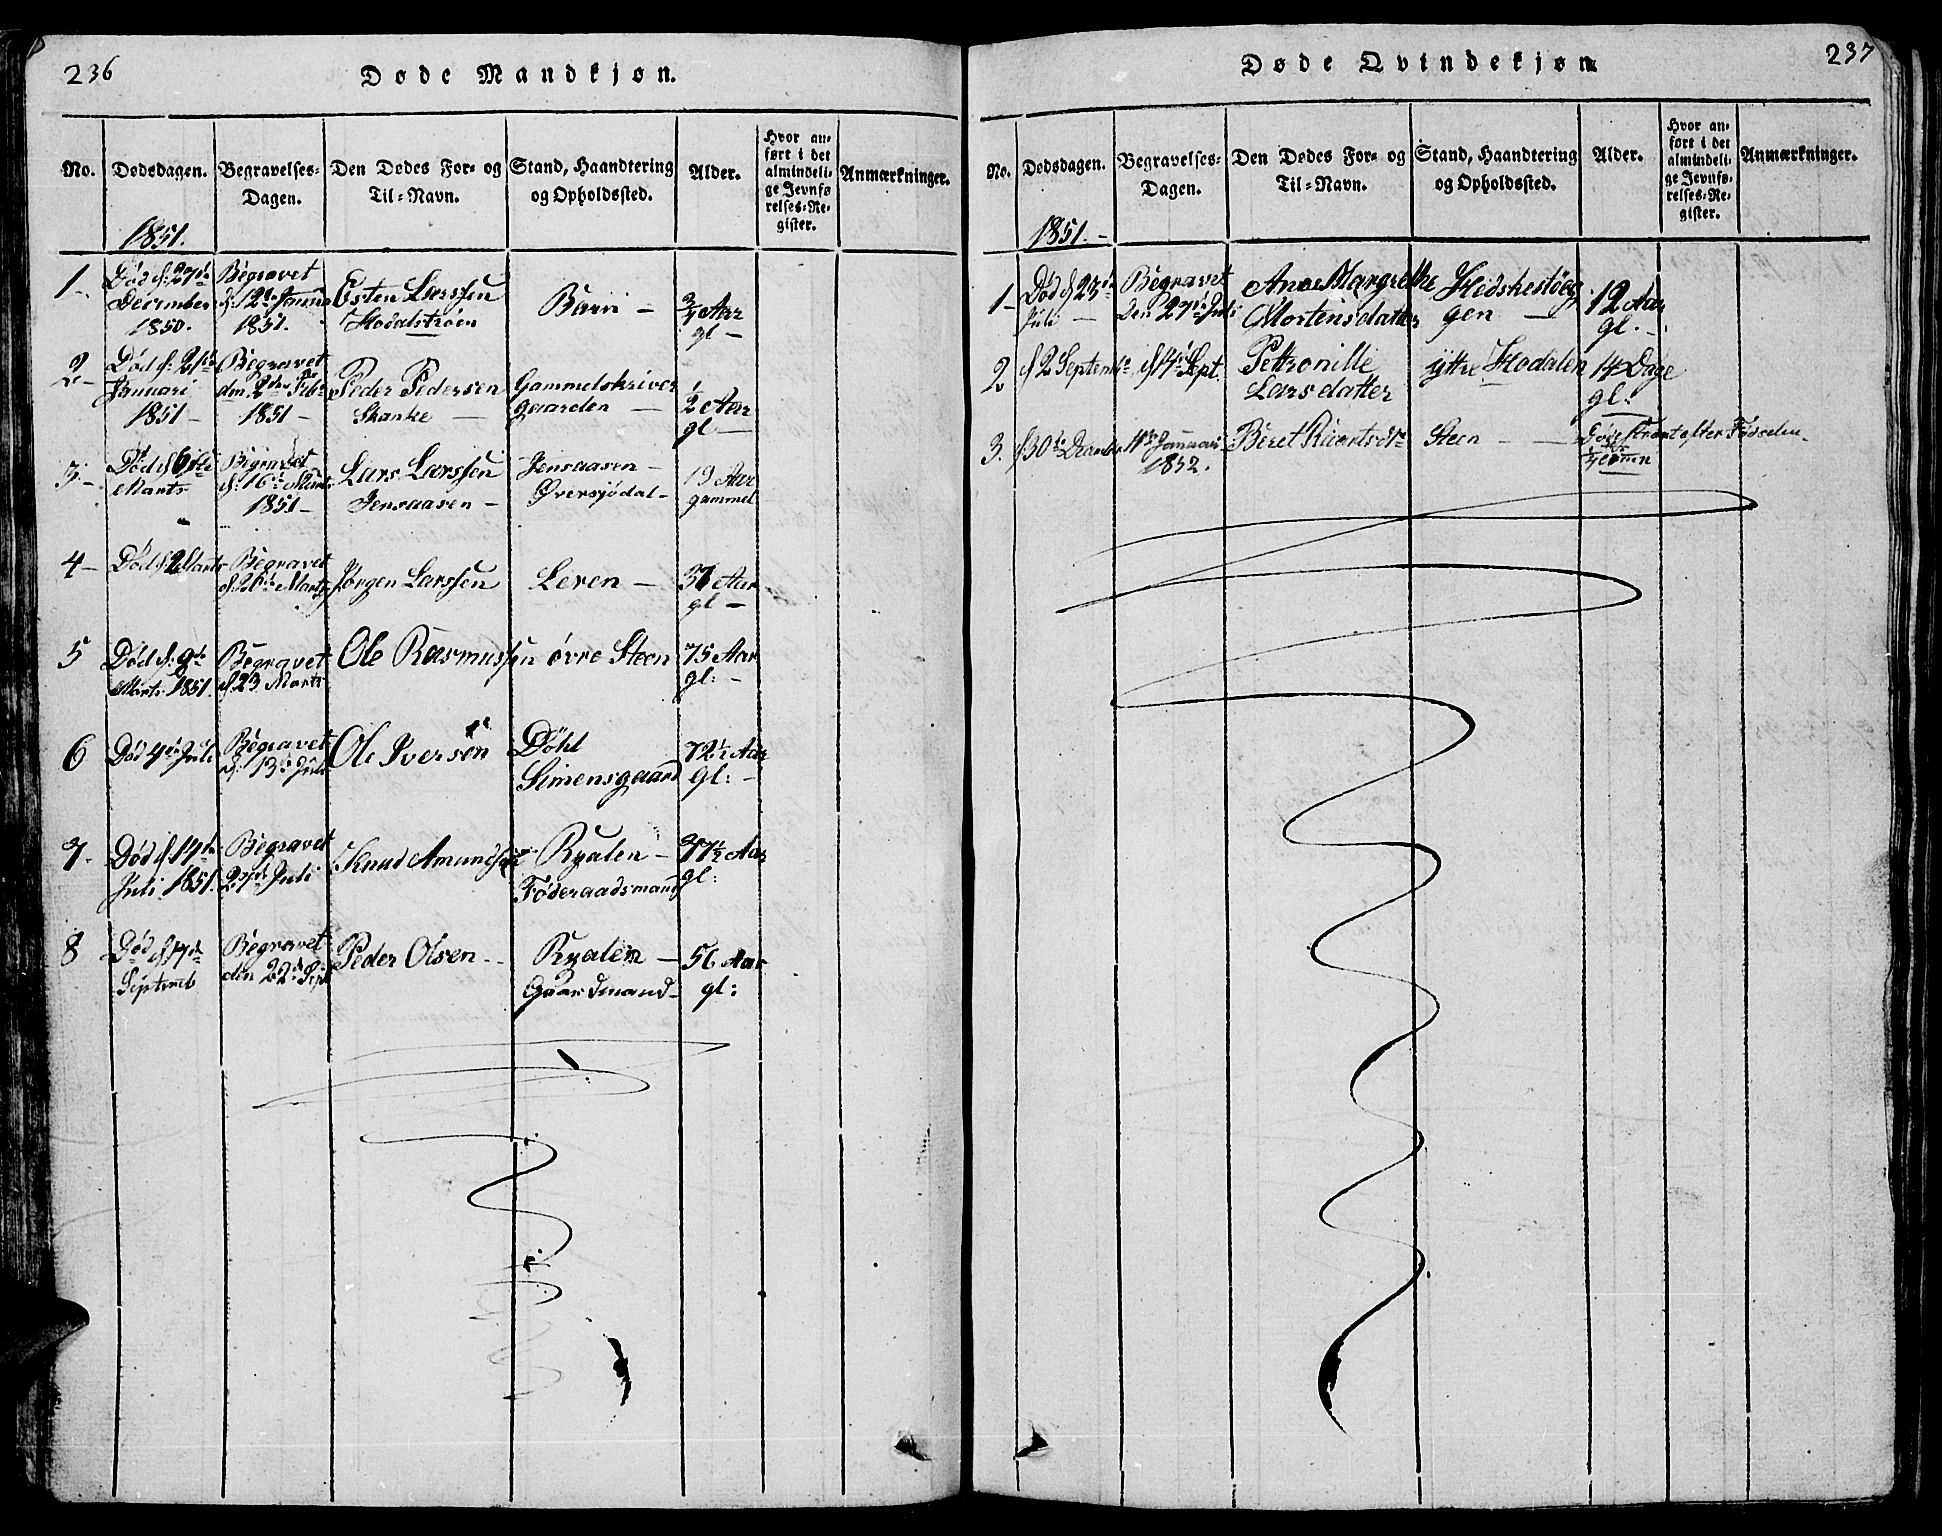 236
Døde Mandkjøn.
No.
Dødsdagen.
Begravelses-
Dagen.
Den Dødes For- og
Til-Navn.
Stand, Haandtering
og Opholdssted.
Alder.
Hvor an-
ført i det
almindeli-
ge Jevnfø-
relses-Re-
gister.
Anmærkninger.
1851.
1-
Død d: 27de
December
1850.
Begravet
1851.
Esten Larssen
Hodalstrøen
Barn -
3/4 Aar
gl -
2-
Januari
1851-
Begravet
1851-
Peder Pedersen
Skanke -
Gammelskriver
gaarden -
1/2 Aar
gl -
3-
Død d 6te
Marts
Begravet
d: 16de Marts
1851-
Lars Larssen
Jensaasen -
Jensaasen -
Øversjødal -
19 Aar
gammel
4-
Begravet
Jørgen Larssen
Leren -
37 Aar
gl -
5
Død d: 9de
Marts 1851.
Begravet
d 23 Marts
Ole Rasmussen
øvre Steen
75 Aar
gl: -
6
Død 4de Juli
Begravet
d: 13de Juli
Ole Iversen
Døhl
Simensgaard
72½ Aar
gl: -
7-
Juli 1851.
Begravet
27de Juli
Knud Amundsen
Ryalen -
Føderaadsmand
77½ Aar
gl:
8
Septemb
Begravet
den 22de Sept
Peder Olsen -
Ryalen -
Gaardmand -
56 Aar
gl:
237
Døde Qvindekjøn
No.
Dødsdagen.
Begravelses-
Dagen.
Den Dødes For- og
Til-Navn.
Stand, Haandtering
og Opholdssted.
Alder.
Hvor an-
ført i det
almindeli-
ge Jevnfø-
relses-Re-
gister.
Anmærkninger.
1851.-
1-
Død d 23de
Juli -
Begravet
den 27de Juli
Ane Margrethe
Mortensdatter
gen -
12 Aar
gl. -
2
d 2 Septemb
d 14de Sept.
Pettronille
Larsdatter
yttre Hodalen
14 Dage
gl:
3.
d 30de December
1852.
Steen -
efter Fødselen